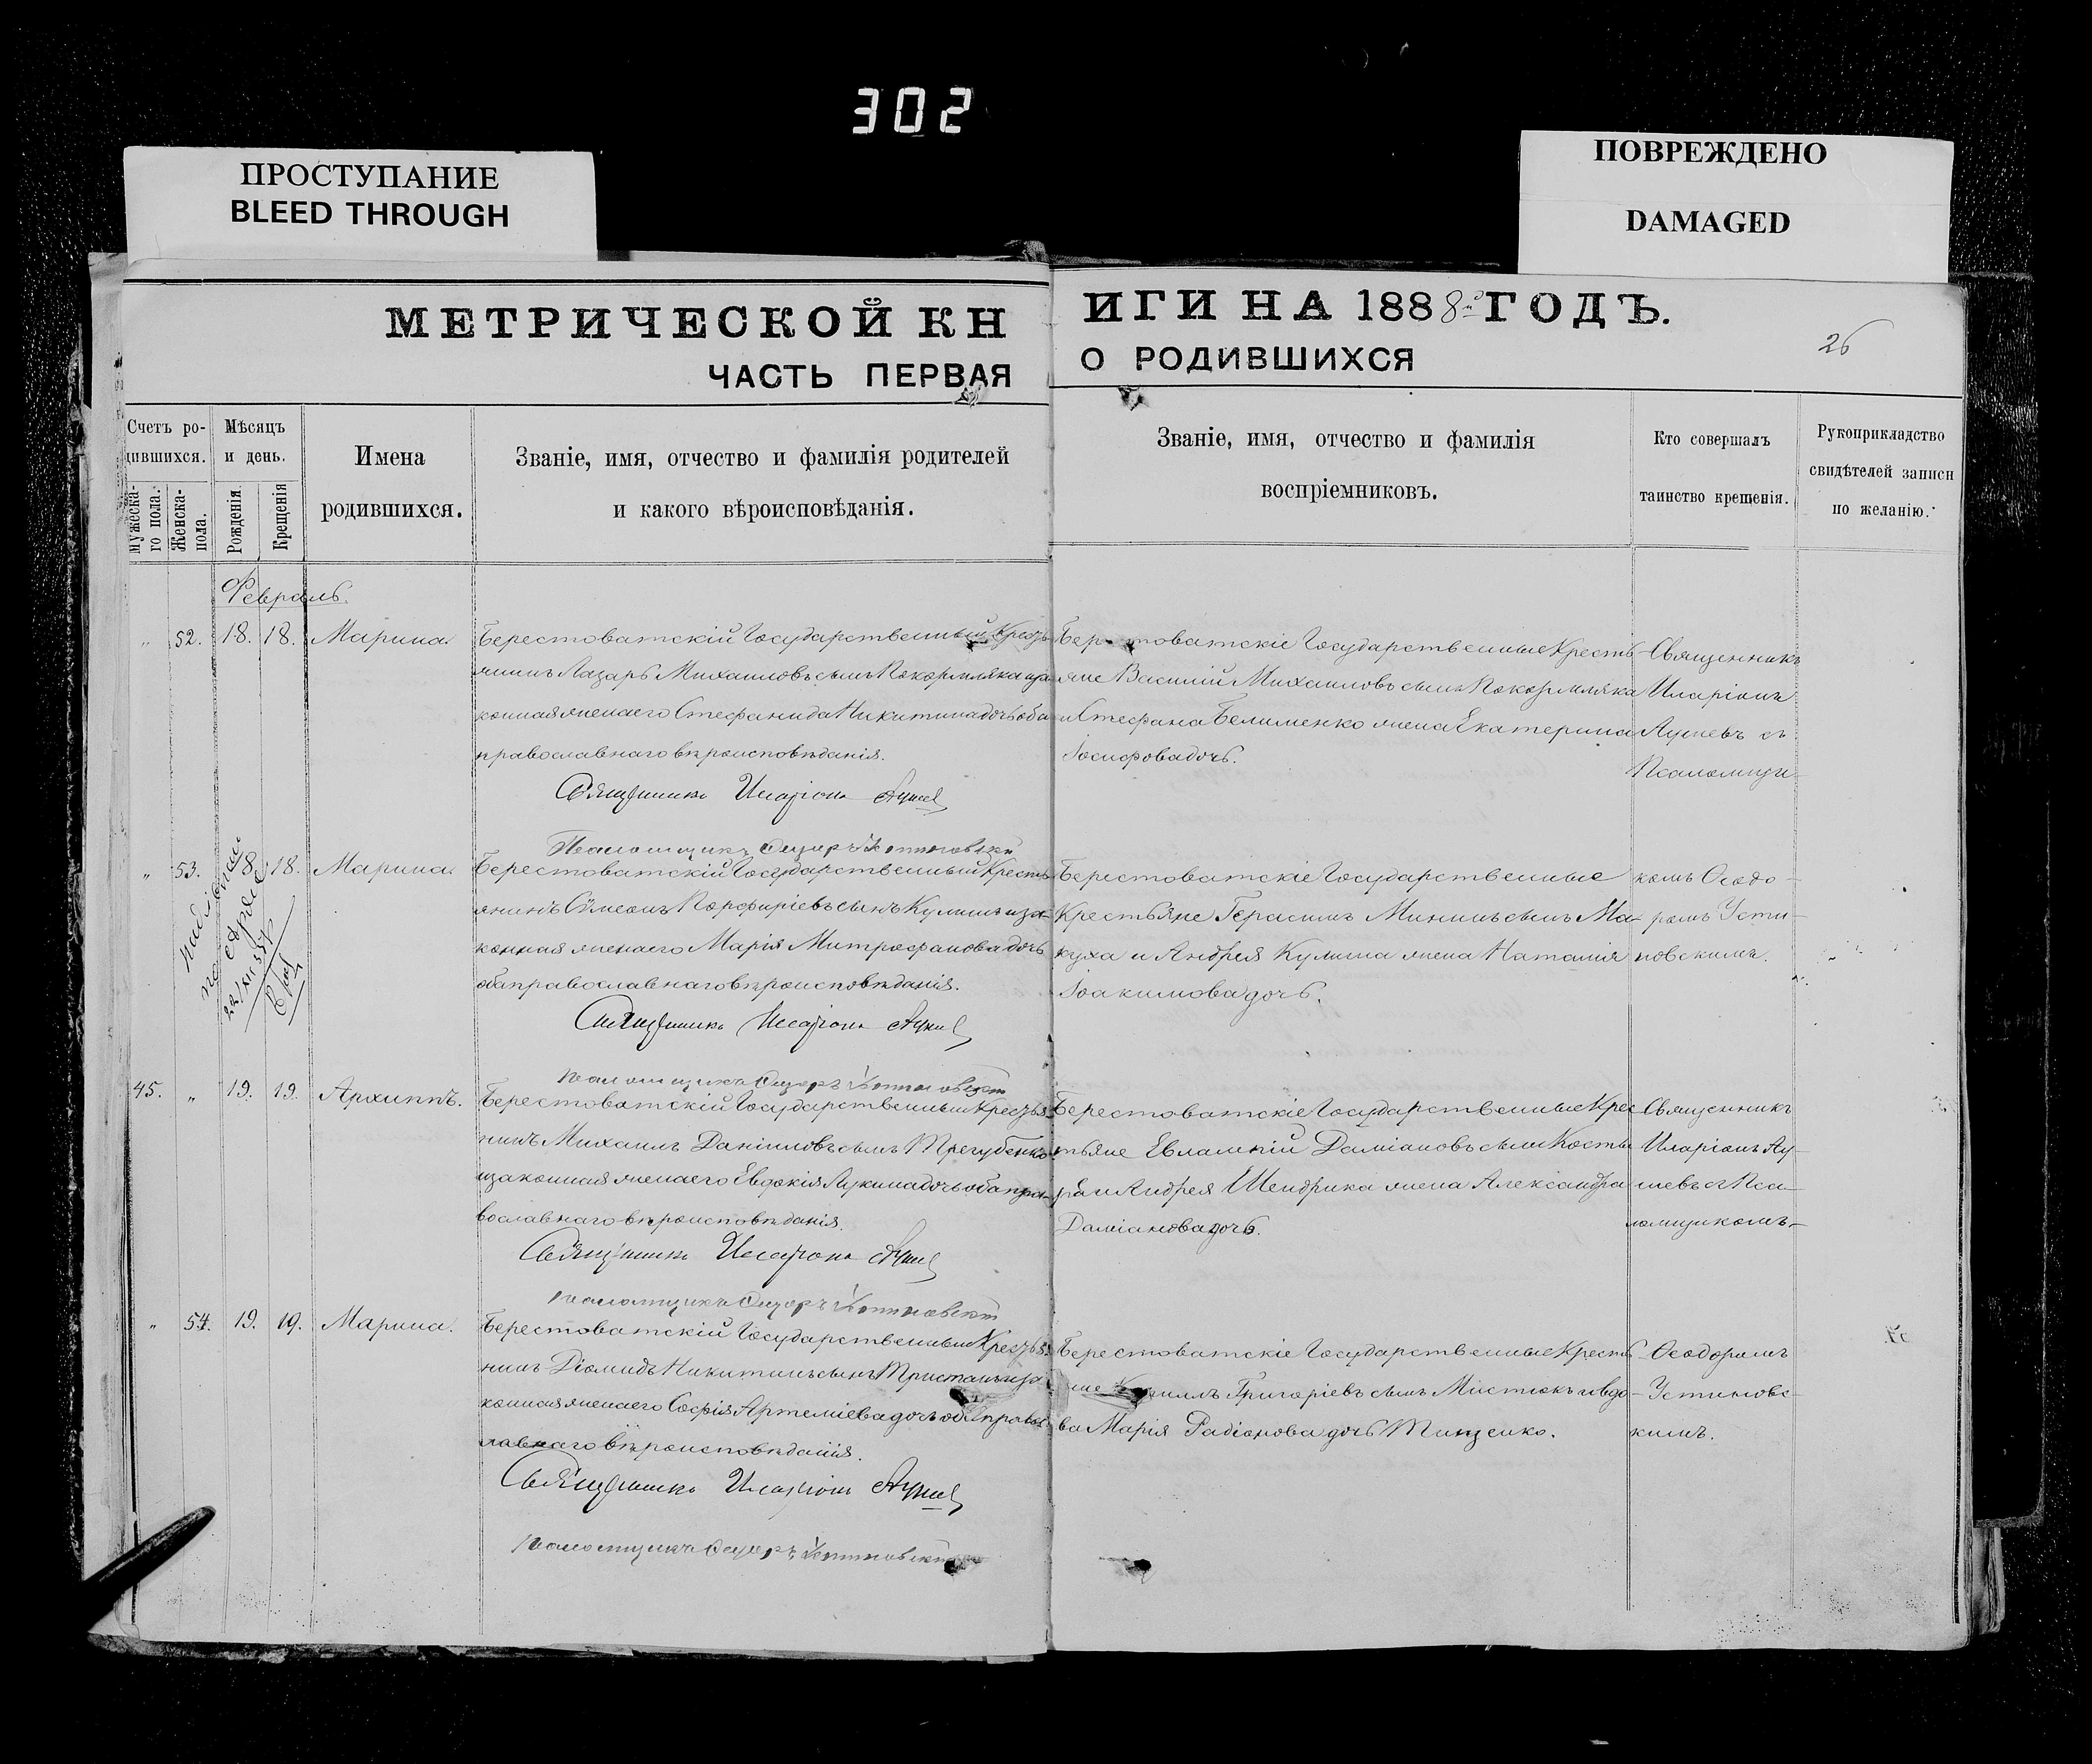 302
ПРОСТУПАНИЕ
BLEED THROUGH
ПОВРЕЖДЕНО
DAMAGED
МЕТРИЧЕСКОЙ КН
ЧАСТЬ ПЕРВАЯ
ИГИ НА 1888й ГОДЪ.
О РОДИВШИХСЯ
26
Счетъ ро-
дившихся.
Мужеска-
го пола.
Женска-
пола.
Мѣсяцъ
и день.
Рожденія
Крещенія
Имена
родившихся.
Званіе, имя, отчество и фамилія родителей
и какого вѣроисповѣданія.
Званіе, имя, отчество и фамилія
воспріемниковъ.
Кто совершалъ
таинство крещенія.
Рукоприкладство
свидѣтелей записи
по желанію.
Февраль.
„ 52. 18. 18. Марина.
Берестоватскій Государственный Кресть
янинъ Лазарь Михаиловъ сынъ Покормляка иза
конная жена его Стефанида Никитина дочь оба
православнаго вѣроисповѣданія.
Священникъ Иларіонъ
Псаломщикъ
Государственные Кресть
яне Василій Михаиловъ сынъ Покормляка
и Стефана Белименко жена Екатерина
Іосифова дочь.
Священникъ
Иларіонъ
съ
Псаломщи-
„ 53. 18. 18. Марина.
Берестоватскій Государственный Кресть
янинъ Сѵмеонъ Порфиріевъ сынъ Кулишъ иза-
конная жена его Марія Митрофанова дочь
оба православнаго вѣроисповѣданія.
Священникъ Иларіонъ
Псаломщикъ
Берестоватскіе Государственные
Крестьяне Герасимъ Мининъ сынъ Ма-
куха и Андрея Кулиша жена Наталія
Іоакимова дочь.
комъ Ѳеодо-
ромъ Усти-
новскимъ.
45. „ 19. 19. Архиппъ.
Берестоватскій Государственный Крестья
нинъ Михаилъ Даніиловъ сынъ Трегубенко
и законная жена его Евдокія Лукина дочь оба пра-
вославнаго вѣроисповѣданія.
Священникъ Иларіонъ
Псаломщикъ
Берестоватскіе Государственные Крес
тьяне Евлампій Даміановъ сынъ Косты
ря и Андрея Шендрика жена Александра
Даміанова дочь.
Священникъ
Иларіонъ
съ Пса-
ломщикомъ-
„ 54. 19. 19. Марина.
Берестоватскій Государственный Крестья
нинъ Діомидъ Никитинъ сынъ Тристанъ иза
конная жена его Софія Артеміева дочь оба правос
лавнаго вѣроисповѣданія.
Священникъ Иларіонъ
Псаломщикъ
Берестоватскіе Государственные Кресть
яне Григоріевъ сынъ и вдо-
ва Марія Радіонова дочь Тищенко.
Ѳеодоромъ
Устиновс-
кимъ.